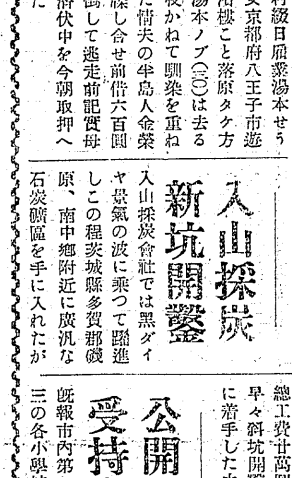 村綴日雇業湯本せう
京都府八王子市遊
樓こと落原タケ方
湯本ノブ(三〇)は去る
枝かねて馴染を重ね
た情夫の半島人金榮
し合せ前借六百圓
して逃走前記實母
潛伏中を今朝取押へ
た
入山採炭
新坑開鑿
入山採炭會社では黑ダイ
ヤ景氣の波に乘つて躍進
しこの程茨城縣多賀郡磯
原、南中郷附近に廣汎な
石炭礦區を手に入れたが
總工費廿萬圓
早々斜坑開
に着手した
公開
受持
既報市内第
三の各小學